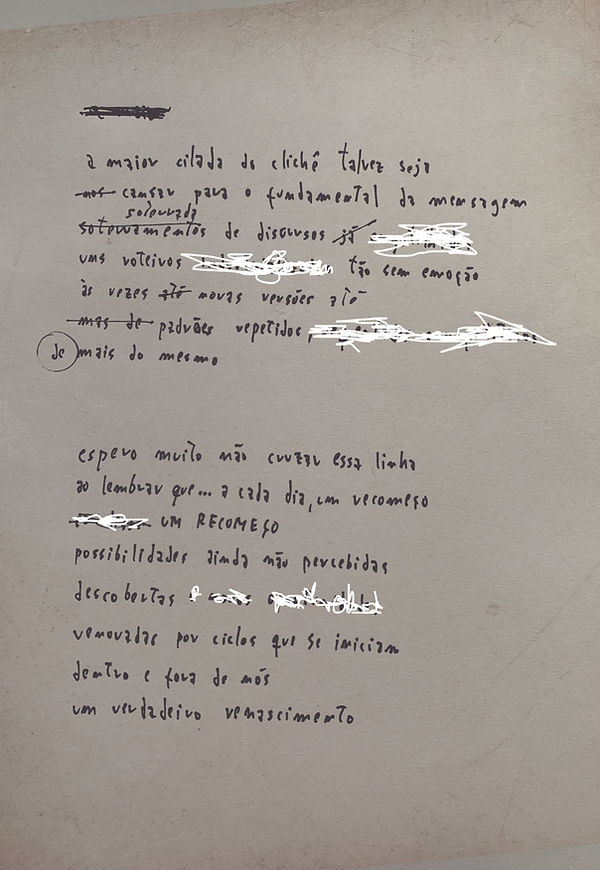 a maior cilada do clichê talvez seja
nos cansar para o fundamental da mensagem
soterrada
soterramentos de discursos já
uns roteiros tão sem emoção
às vezes até novas versões até
mas de padrões repetidos
de mais do mesmo
espero muito não cruzar essa linha
ao lembrar que... a cada dia, um recomeço
UM RECOMEÇO
possibilidades ainda não percebidas
descobertas
renovadas por ciclos que se iniciam
dentro e fora de nós
um verdadeiro renascimento